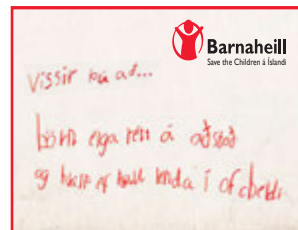 Barnaheill
Save the Children á Íslandi
Vissir þú að...
börn eiga rétt á aðstoð
og hjálp ef þau lenda í ofbeldi